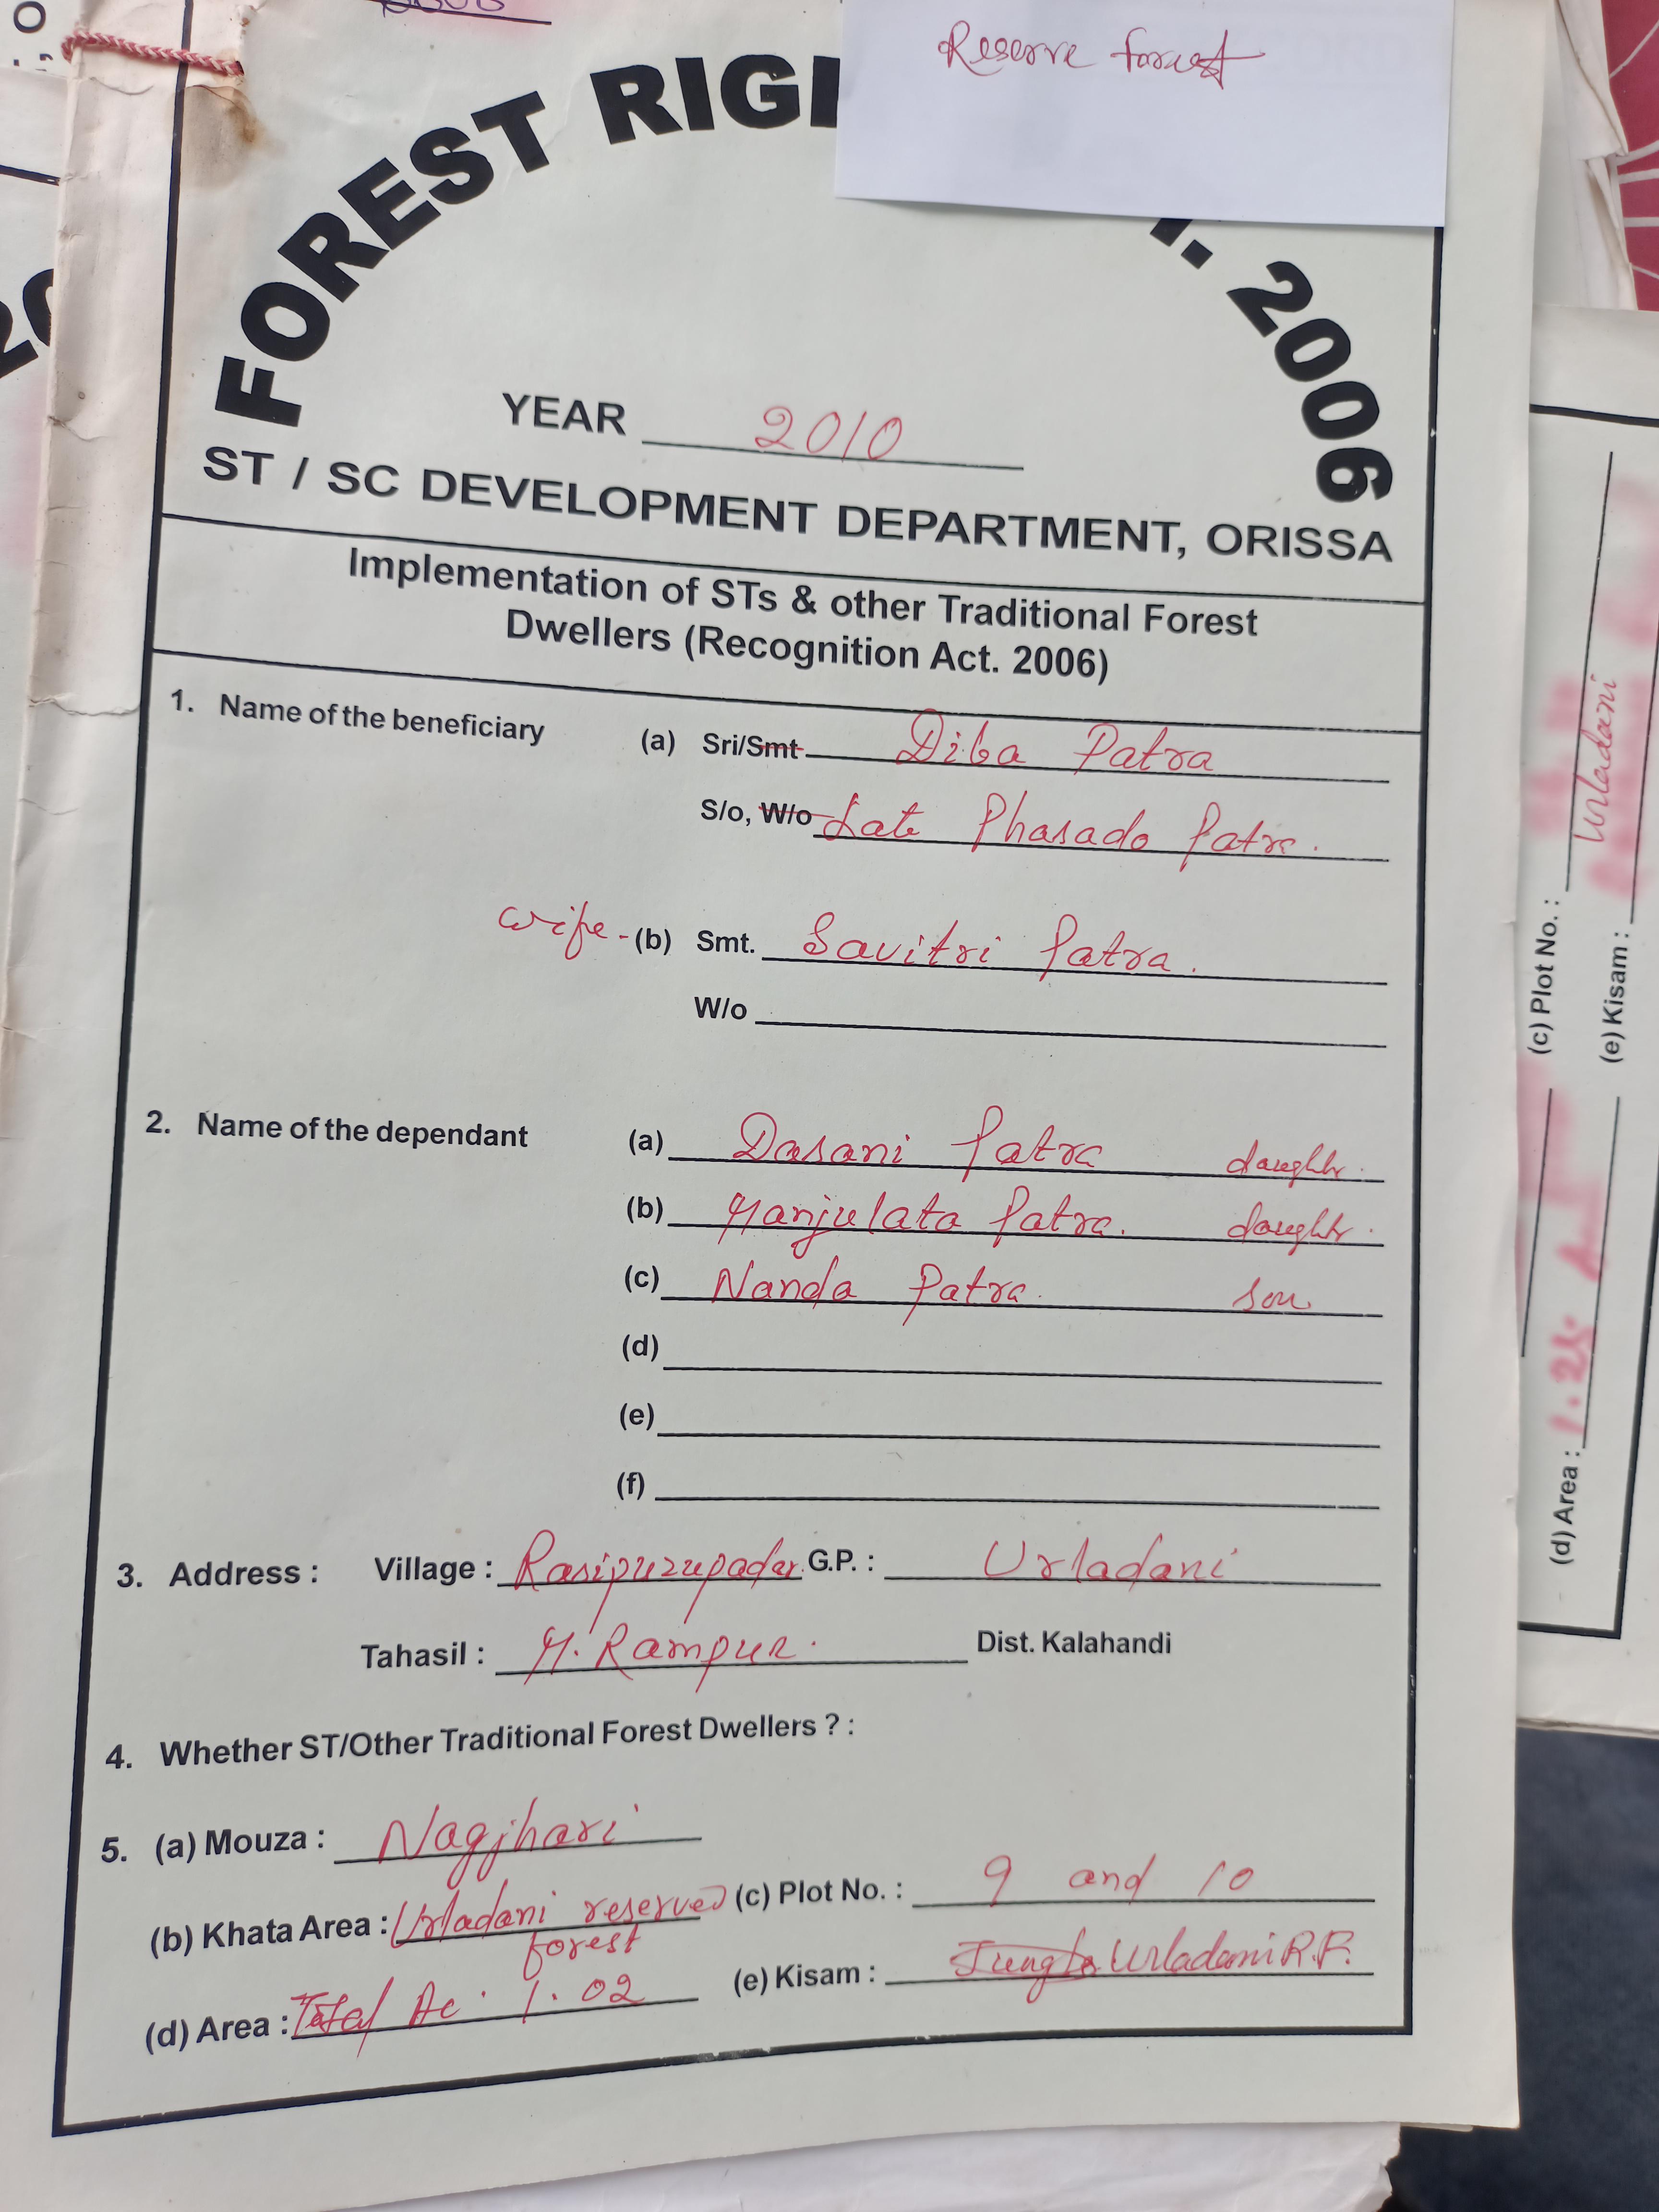 Reserve forest
FOREST RIGH
. 2006
YEAR 2010
ST / SC DEVELOPMENT DEPARTMENT, ORISSA
Implementation of STs & other Traditional Forest
Dwellers (Recognition Act. 2006)
1. Name of the beneficiary (a) Sri/Smt Diba Patra
S/o, W/o Late Phasado Patra.
wife - (b) Smt. Savitri Patra.
W/o
2. Name of the dependant (a) Dasani Patra daughtr.
(b) Manjulata Patra. daughtr.
(c) Nanda Patra. son
(d)
(e)
(f)
3. Address : Village : Rasipuzupadar G.P. : Urladani
Tahasil : M. Rampur. Dist. Kalahandi
4. Whether ST/Other Traditional Forest Dwellers ? :
5. (a) Mouza : Nagjhari
(b) Khata Area : Urladani reserved forest (c) Plot No. : 9 and 10
(d) Area : Total Ac. 1.02 (e) Kisam : Jungle Urladani R.F.
(c) Plot No. :
Urladani
(e) Kisam :
(d) Area : 1.25